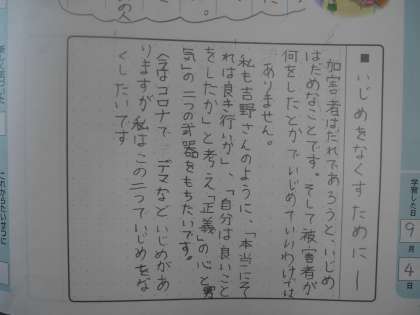 学習した日
9月4日
■いじめをなくすために－
加害者はだれであろうと、いじめ
はだめなことです。そして被害者が
何をしたとかでいじめていいわけでは
ありません。
私も吉野さんのように、「本当にそ
れは良き行いか」、「自分は良いこと
をしたか」と考え「正義」の心と「勇
気」の二つの武器をもちたいです。
今はコロナで、デマなどいじめがあ
りますが、私はこの二つでいじめをな
くしたいです
の人